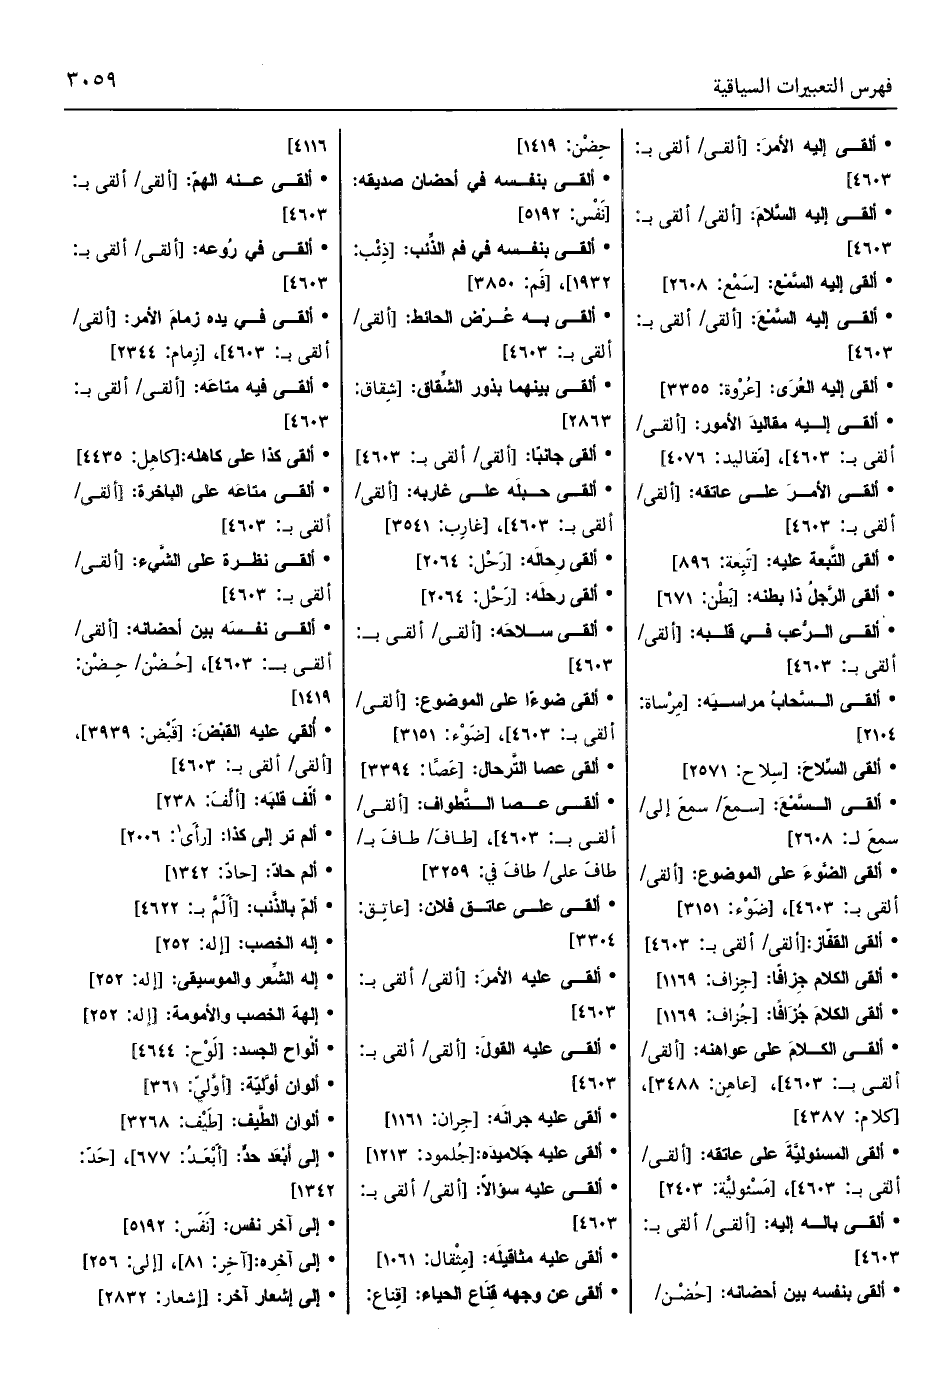 فهرس التعبيرات السياقية
٣٠٥٩
• ألقى إليه الأمرَ: [ألقى/ ألقى بـ:
٤٦٠٣]
• ألقى إليه السَّلامَ: [ألقى/ ألقى بـ:
٤٦٠٣]
• ألقى إليه السَّمْع: [سَمْع: ٢٦٠٨]
• ألقى إليه السَّمْعَ: [ألقى/ ألقى بـ:
٤٦٠٣]
• ألقى إليه العُرَى: [عُرْوة: ٣٣٥٥]
• ألقى إليه مقاليدَ الأمور: [ألقى/
ألقى بـ: ٤٦٠٣]، [مَقاليد: ٤٠٧٦]
• ألقى الأمرَ على عاتقه: [ألقى/
ألقى بـ: ٤٦٠٣]
• ألقى التَّبعة عليه: [تَبِعة: ٨٩٦]
• ألقى الرَّجلُ ذا بطنه: [بَطْن: ٦٧١]
• ألقى الرُّعب في قلبه: [ألقى/
ألقى بـ: ٤٦٠٣]
• ألقى السَّحابُ مراسيَه: [مِرْساة:
٢١٠٤]
• ألقى السِّلاحَ: [سِلاح: ٢٥٧١]
• ألقى السَّمْعَ: [سمعَ/ سمعَ إلى/
سمعَ لـ: ٢٦٠٨]
• ألقى الضَّوءَ على الموضوع: [ألقى/
ألقى بـ: ٤٦٠٣]، [ضَوْء: ٣١٥١]
• ألقى القفّاز:[ألقى/ ألقى بـ: ٤٦٠٣]
• ألقى الكلام جزافًا: [جزاف: ١١٦٩]
• ألقى الكلامَ جُزَافًا: [جُزاف: ١١٦٩]
• ألقى الكلامَ على عواهنه: [ألقى/
ألقى بـ: ٤٦٠٣]، [عاهِن: ٣٤٨٨]،
[كلام: ٤٣٨٧]
• ألقى المسئوليَّةَ على عاتقه: [ألقى/
ألقى بـ: ٤٦٠٣]، [مَسْئوليَّة: ٢٤٠٣]
• ألقى باله إليه: [ألقى/ ألقى بـ:
٤٦٠٣]
• ألقى بنفسه بين أحضانه: [حُضْن/
حِضْن: ١٤١٩]
• ألقى بنفسه في أحضان صديقه:
[نَفْس: ٥١٩٢]
• ألقى بنفسه في فم الذِّئب: [ذِئْب:
١٩٣٢]، [فَم: ٣٨٥٠]
• ألقى به عُرْضَ الحائط: [ألقى/
ألقى بـ: ٤٦٠٣]
• ألقى بينهما بذور الشِّقاق: [شِقاق:
٢٨٦٣]
• ألقى جانبًا: [ألقى/ ألقى بـ: ٤٦٠٣]
• ألقى حبلَه على غاربه: [ألقى/
ألقى بـ: ٤٦٠٣]، [غارِب: ٣٥٤١]
• ألقى رِحالَه: [رَحْل: ٢٠٦٤]
• ألقى رحلَه: [رَحْل: ٢٠٦٤]
• ألقى سلاحَه: [ألقى/ ألقى بـ:
٤٦٠٣]
• ألقى ضوءًا على الموضوع: [ألقى/
ألقى بـ: ٤٦٠٣]، [ضَوْء: ٣١٥١]
• ألقى عصا التَّرحال: [عَصًا: ٣٣٩٤]
• ألقى عصا التَّطواف: [ألقى/
ألقى بـ: ٤٦٠٣]، [طافَ/ طافَ بـ/
طافَ على/ طافَ في: ٣٢٥٩]
• ألقى على عاتق فلان: [عاتِق:
٣٣٠٤]
• ألقى عليه الأمرَ: [ألقى/ ألقى بـ:
٤٦٠٣]
• ألقى عليه القولَ: [ألقى/ ألقى بـ:
٤٦٠٣]
• ألقى عليه جرانَه: [جِران: ١١٦١]
• ألقى عليه جَلاميدَه:[جُلمود: ١٢١٣]
• ألقى عليه سؤالاً: [ألقى/ ألقى بـ:
٤٦٠٣]
• ألقى عليه مثاقيلَه: [مِثْقال: ١٠٦١]
• ألقى عن وجهه قِنَاع الحياء: [قِناع:
٤١١٦]
• ألقى عنه الهمّ: [ألقى/ ألقى بـ:
٤٦٠٣]
• ألقى في رُوعه: [ألقى/ ألقى بـ:
٤٦٠٣]
• ألقى في يده زمامَ الأمر: [ألقى/
ألقى بـ: ٤٦٠٣]، [زِمام: ٢٣٤٤]
• ألقى فيه متاعَه: [ألقى/ ألقى بـ:
٤٦٠٣]
• ألقى كذا على كاهله:[كاهِل: ٤٤٣٥]
• ألقى متاعَه على الباخرة: [ألقى/
ألقى بـ: ٤٦٠٣]
• ألقى نظرة على الشَّيء: [ألقى/
ألقى بـ: ٤٦٠٣]
• ألقى نفسَه بين أحضانه: [ألقى/
ألقى بـ: ٤٦٠٣]، [حُضْن/ حِضْن:
١٤١٩]
• أُلقي عليه القبْضَ: [قَبْض: ٣٩٣٩]،
[ألقى/ ألقى بـ: ٤٦٠٣]
• ألّف قلبَه: [ألَّفَ: ٢٣٨]
• ألم تر إلى كذا: [رأى١: ٢٠٠٦]
• ألم حادّ: [حادّ: ١٣٤٢]
• ألمّ بالذَّنب: [أَلَمَّ بـ: ٤٦٢٢]
• إله الخصب: [إله: ٢٥٢]
• إله الشِّعر والموسيقى: [إله: ٢٥٢]
• إلهة الخصب والأمومة: [إله: ٢٥٢]
• ألْواح الجسد: [لَوْح: ٤٦٤٤]
• ألوان أوَّليّة: [أوَّليّ: ٣٦١]
• ألوان الطَّيف: [طَيْف: ٣٢٦٨]
• إلى أَبْعَد حدٍّ: [أَبْعَدُ: ٦٧٧]، [حَدّ:
١٣٤٢]
• إلى آخر نفس: [نَفَس: ٥١٩٢]
• إلى آخِره:[آخِر: ٨١]، [إلى: ٢٥٦]
• إلى إشعار آخر: [إشعار: ٢٨٣٢]